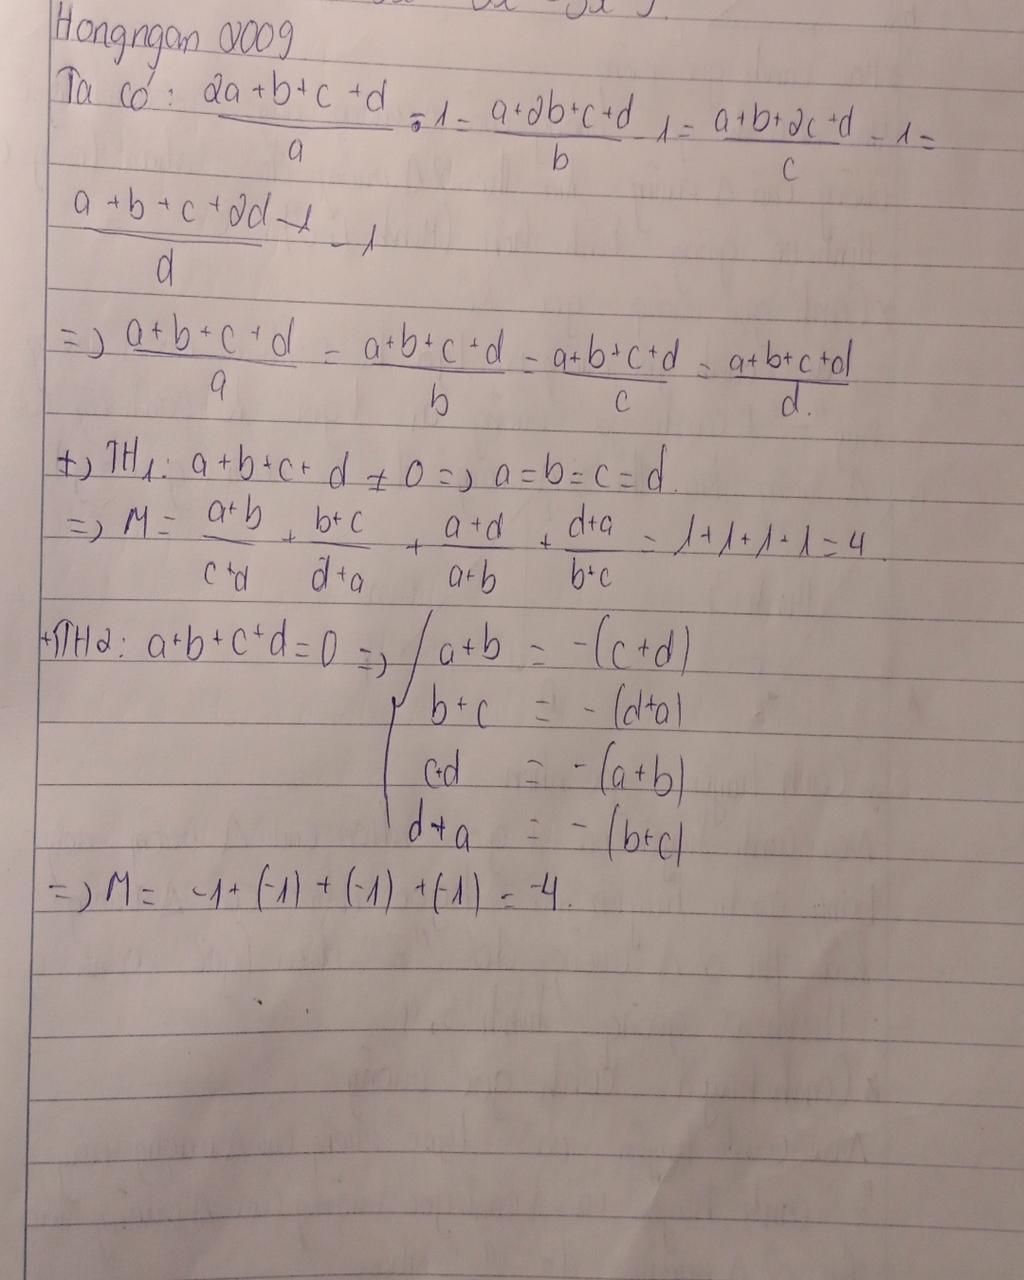 Hongngan 0009
Ta có: 2a+b+c+d/a - 1 = a+2b+c+d/b - 1 = a+b+2c+d/c - 1 =
a+b+c+2d-1/d - 1
=> a+b+c+d/a = a+b+c+d/b = a+b+c+d/c = a+b+c+d/d.
+, TH1: a+b+c+d ≠ 0 => a=b=c=d.
=> M = a+b/c+d + b+c/d+a + a+d/a+b + d+a/b+c = 1+1+1+1=4
+TH2: a+b+c+d=0 => a+b = -(c+d)
b+c = -(d+a)
c+d = -(a+b)
d+a = -(b+c)
=> M = -1+(-1)+(-1)+(-1) = -4.